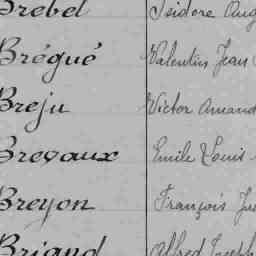 Brebel Isidore Aug
Brégué Valentin Jean
Breju Victor Amand
Brevaux Emile Louis
Breyon François Ju
Briand Alfred Joseph